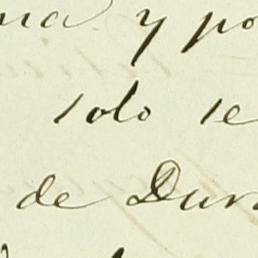 na y po
solo se
de Dur